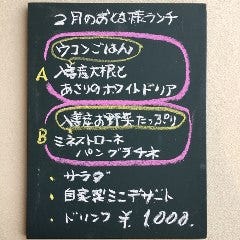 2月のお子様ランチ
ウコンごはん
A 淡路産大根と
あさりのホワイトドリア
淡路産お野菜たっぷり
B ミネストローネ
パングラチネ
・サラダ
・自家製ミニデザート
・ドリンク ¥1,000.